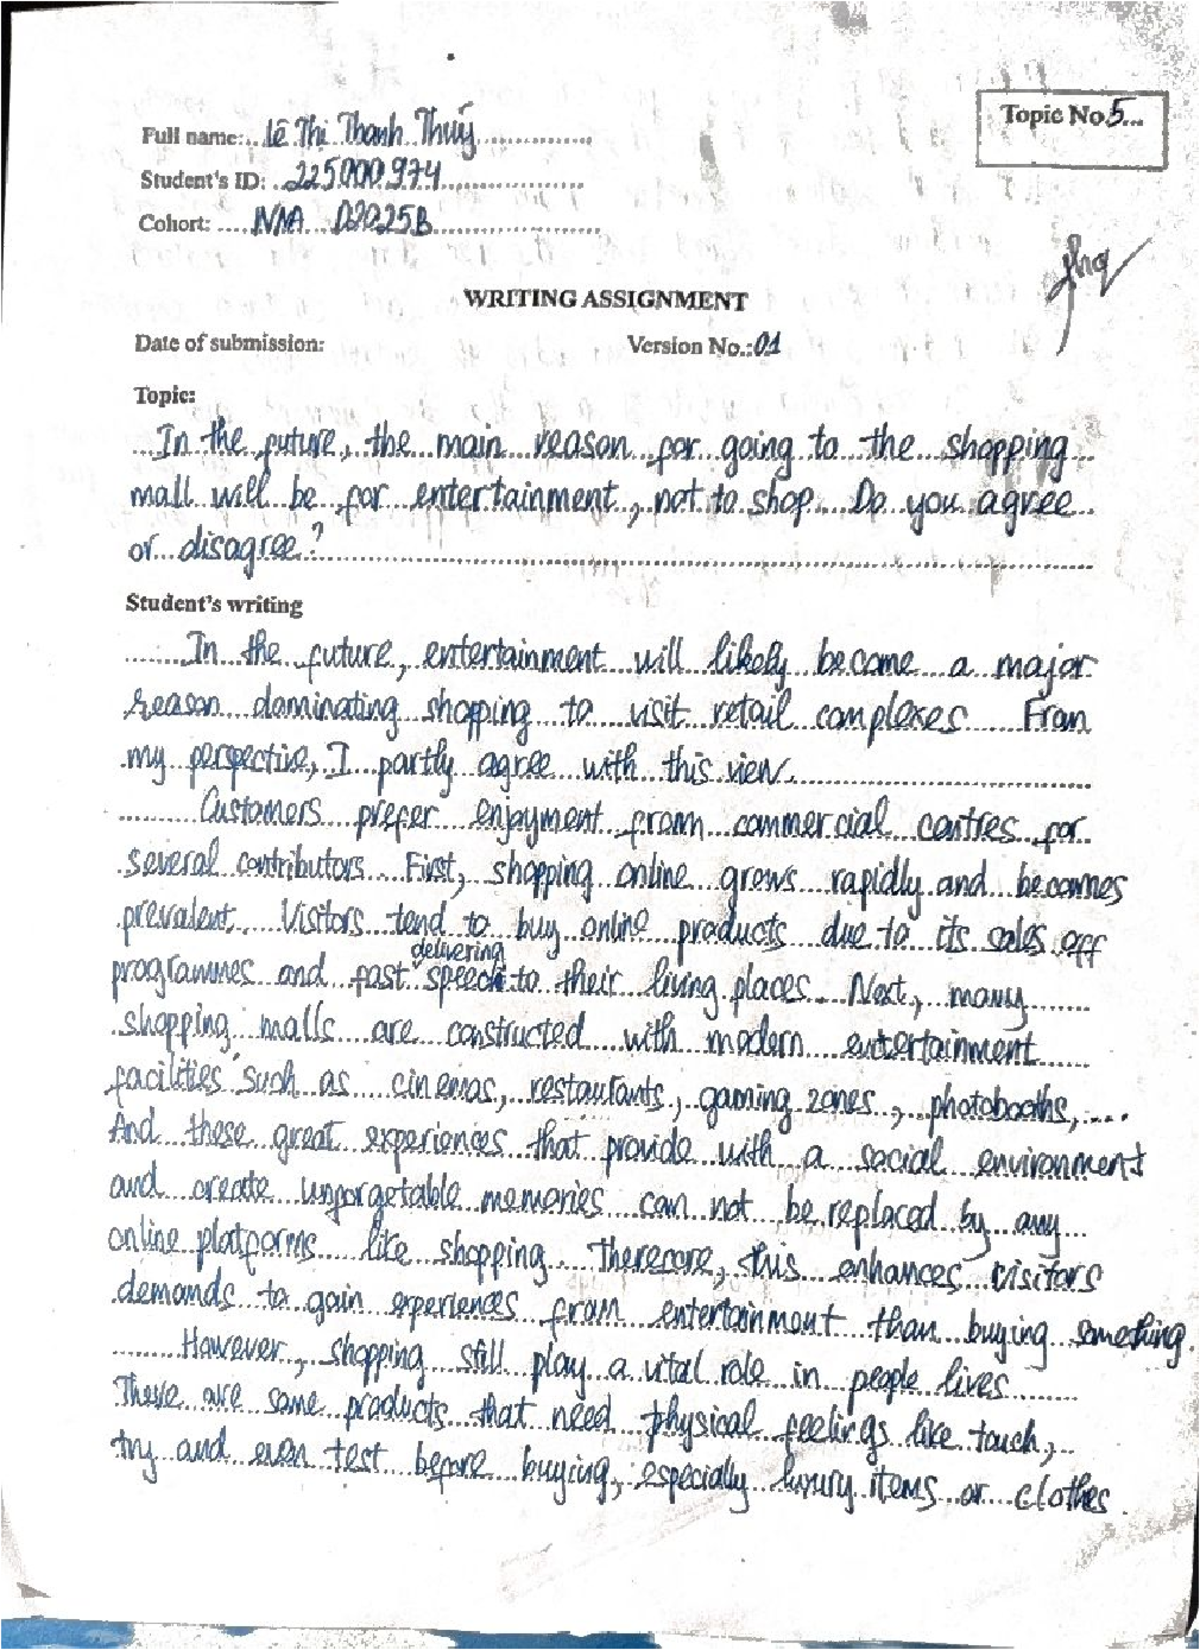 Topic No 5...
Full name: Lê Thị Thanh Thuý
Student's ID: 225000974
Cohort: NNA D2025B
WRITING ASSIGNMENT
Date of submission:
Version No.: 01
Topic:
In the future, the main reason for going to the shopping
mall will be for entertainment, not to shop. Do you agree
or disagree?
Student's writing
In the future, entertainment will likely become a major
reason dominating shopping to visit retail complexes. From
my perspective, I partly agree with this view.
Customers prefer enjoyment from commercial centres for
several contributors. First, shopping online grows rapidly and becomes
prevalent. Visitors tend to buy online products due to its sales off
delivering
programmes and fast speed to their living places. Next, many
shopping malls are constructed with modern entertainment
facilities such as cinemas, restaurants, gaming zones, photobooths,....
And these great experiences that provide with a social environment
and create unforgetable memories can not be replaced by any
online platforms like shopping. Therefore, this enhances visitors
demands to gain experiences from entertainment than buying something.
However, shopping still play a vital role in people lives.
There are some products that need physical feelings like touch,
try and even test before buying, especially luxury items or clothes.